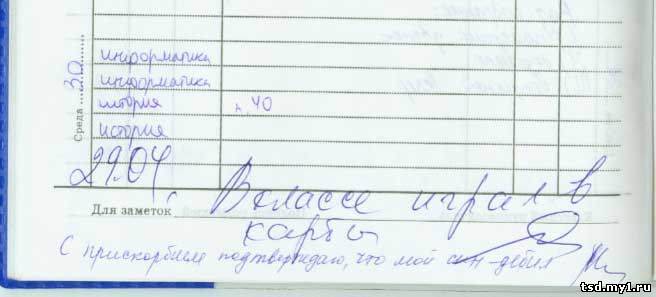 информатика
информатика
история п. 40
история
Среда ..... 30
29.04
В классе играл в
Для заметок
карты
С прискорбием подтверждаю, что мой сын-дебил
tsd.my1.ru